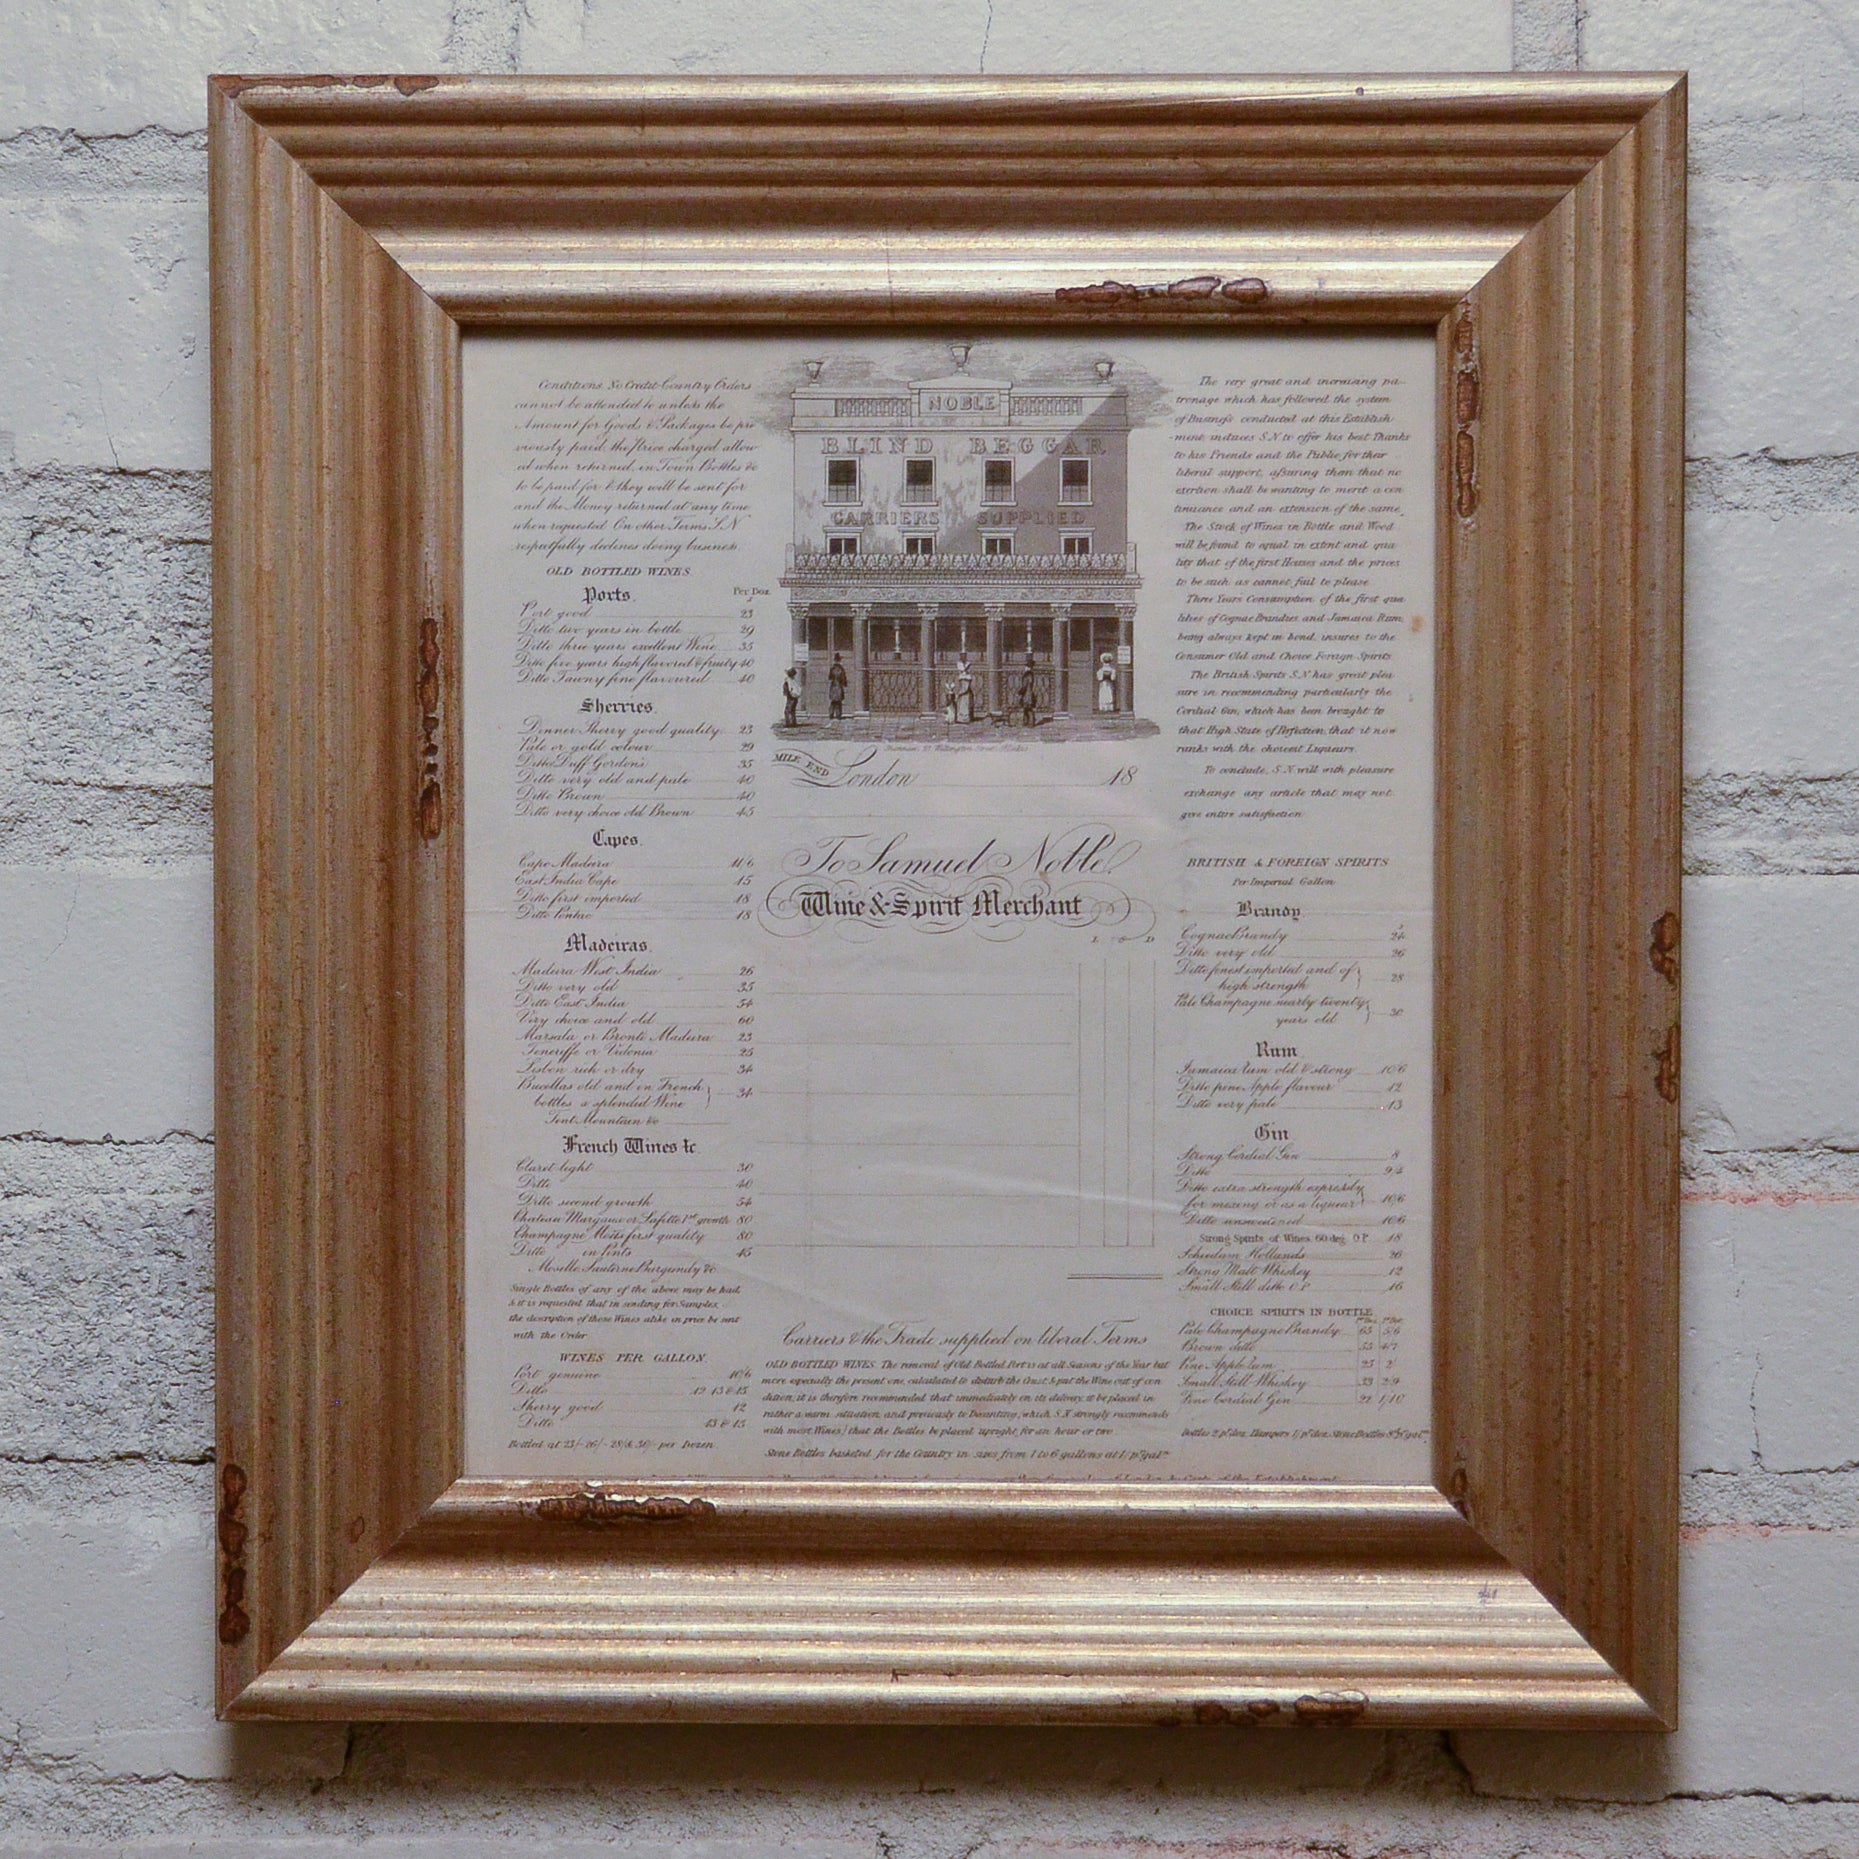 Conditions. No Credit Country Orders
cannot be attended to unless the
Amount for Goods & Packages be pre
viously paid, the price charged allow
ed when returned, in Town Bottles &c
to be paid for & they will be sent for
and the Money returned at any time
when requested. On other Terms S.N
respectfully declines doing business.
OLD BOTTLED WINES
Ports. Per Doz
Port good 23
Ditto two years in bottle 29
Ditto three years excellent Wine 35
Ditto five years high flavored & fruity 40
Ditto Tawny fine flavoured 40
Sherries.
Dinner Sherry good quality 23
Pale or gold colour 29
Ditto Duff Gordon's 35
Ditto very old and pale 40
Ditto Brown 40
Ditto very choice old Brown 45
Capes.
Cape Madeira 11/6
East India Cape 15
Ditto first imported 18
Ditto Pontac 18
Madeiras.
Madeira West India 26
Ditto very old 35
Ditto East India 54
Very choice and old 60
Marsala or Bronte Madeira 23
Teneriffe or Vidonia 25
Lisbon rich or dry 34
Bucellas old and in French
bottles a splendid Wine 34
Tent Mountain &c
French Wines &c
Claret light 30
Ditto 40
Ditto second growth 54
Chateau Margaux or Lafitte 1st growth 80
Champagne Möets first quality 80
Ditto in Pints 45
Moselle Sauterne Burgundy &c
Single Bottles of any of the above may be had,
& it is requested that in sending for Samples,
the description of those Wines alike in price be sent
with the Order
WINES PER GALLON.
Port genuine 10/6
Ditto 12 13 & 15
Sherry good 12
Ditto 13 & 15
Bottled at 23/- 26/- 28/- & 30/- per Dozen.
NOBLE
BLIND BEGGAR
CARRIERS SUPPLIED
MILE END
London 18
To Samuel Noble.
Wine & Spirit Merchant
L S D
Carriers & the Trade supplied on liberal Terms
OLD BOTTLED WINES. The removal of Old Bottled Port is at all Seasons of the Year but
more especially the present one, calculated to disturb the Crust & put the Wine out of con
dition; it is therefore recommended that immediately on its delivery it be placed in
rather a warm situation, and previously to Decanting, (which S.N strongly recommends
with most Wines) that the Bottles be placed upright, for an hour or two
Stone Bottles basketed for the Country in sizes from 1 to 6 gallons at 1/ pr galn
The very great and increasing pa-
tronage which has followed the system
of Business conducted at this Establish
-ment, induces S.N to offer his best Thanks
to his Friends and the Public for their
liberal support, assuring them that no
exertion shall be wanting to merit a con
tinuance and an extension of the same.
The Stock of Wines in Bottle and Wood
will be found to equal in extent and qua
lity that of the first Houses and the prices
to be such as cannot fail to please
Three Years Consumption of the first qua
lities of Cognac Brandies and Jamaica Rum,
being always kept in bond, insures to the
Consumer Old and Choice Foreign Spirits
The British Spirits S.N has great plea
sure in recommending particularly the
Cordial Gin, which has been brought to
that High State of Perfection, that it now
ranks with the choicest Liqueurs.
To conclude, S.N will with pleasure
exchange any article that may not
give entire satisfaction
BRITISH & FOREIGN SPIRITS
Per Imperial Gallon
Brandy.
Cognac Brandy 24
Ditto very old 26
Ditto finest imported and of
high strength 28
Pale Champagne nearly twenty
years old 30
Rum
Jamaica Rum old & strong 10/6
Ditto pine Apple flavour 12
Ditto very pale 13
Gin
Strong Cordial Gin 8
Ditto 9/4
Ditto extra strength expressly
for mixing or as a liqueur 10/6
Ditto unsweetened 10/6
Strong Spirits of Wines 60 deg. O.P. 18
Schiedam Hollands 26
Strong Malt Whiskey 12
Small Still ditto O.P 16
CHOICE SPIRITS IN BOTTLE
Pale Champagne Brandy 65 5/6
Brown ditto 55 4/7
Pine Apple Rum 25 2/
Small Still Whiskey 33 2/9
Fine Cordial Gin 22 1/10